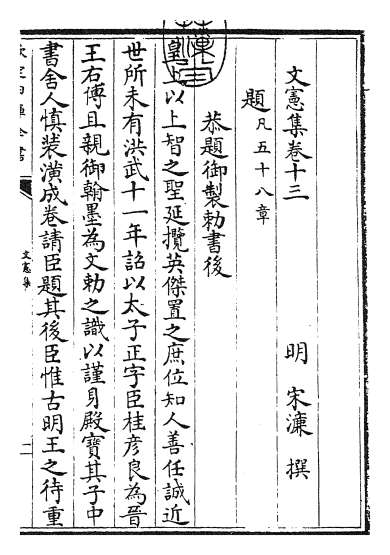 文憲集卷十三
明 宋濂 撰
題凡五十八章
恭題御製勅書後
皇上以上智之聖延攬英傑置之庶位知人善任誠近
世所未有洪武十一年詔以太子正字臣桂彦良為晉
王右傅且親御翰墨為文勅之識以謹身殿寶其子中
書舍人慎装潢成卷請臣題其後臣惟古明王之待重
文憲集
二